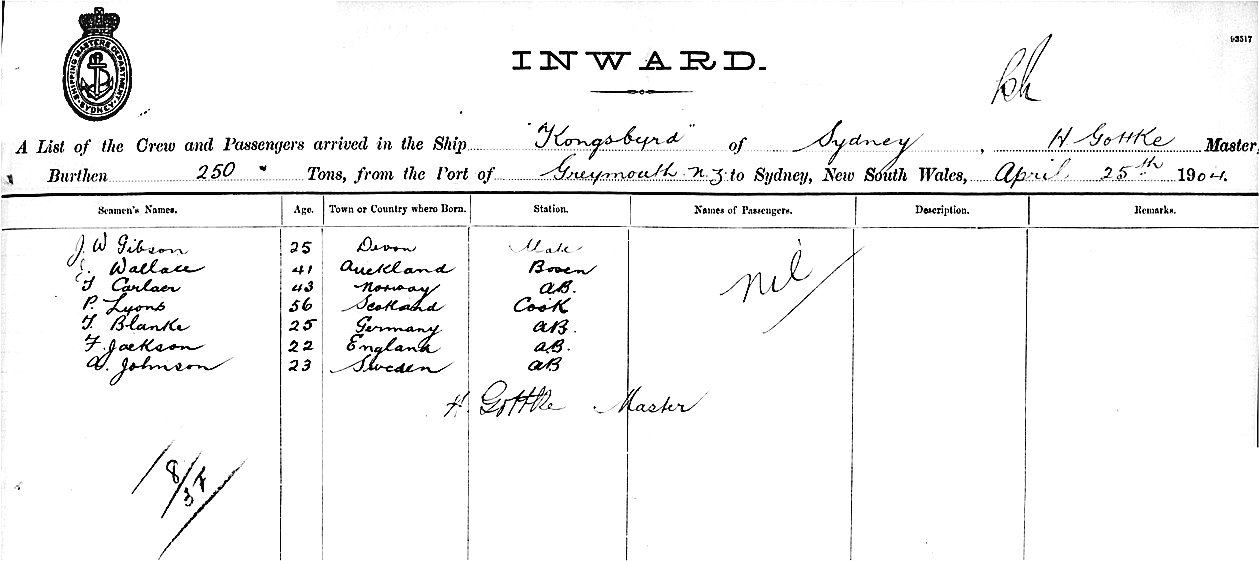 SHIPPING MASTERS DEPARTMENT. SYDNEY.
93517
INWARD.
A List of the Crew and Passengers arrived in the Ship "Kongsbyrd" of Sydney, H Gottke Master,
Burthen 250 Tons, from the Port of Greymouth N.Z to Sydney, New South Wales, April 25th 1904.
Seamen's Names. Age. Town or Country where Born. Station. Names of Passengers. Description. Remarks.
J W Gibson 25 Devon Mate nil
Wallace 41 Auckland Bosen
Carlaer 43 Norway AB.
P. Lyons 56 Scotland Cook
Blanke 25 Germany AB.
F. Jackson 22 England AB.
Johnson 23 Sweden AB
H. Gottke Master
8/3 F